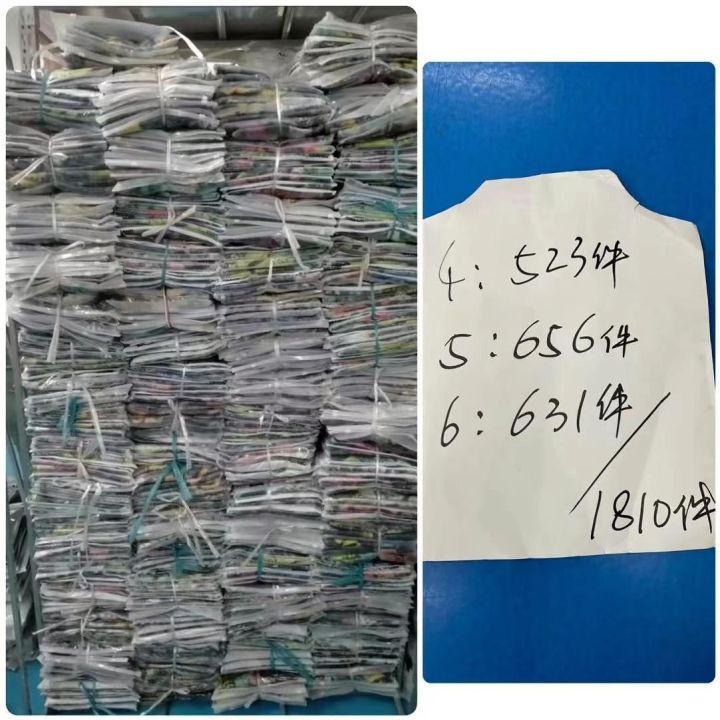 4: 523件
5: 656件
6: 631件
/1810件